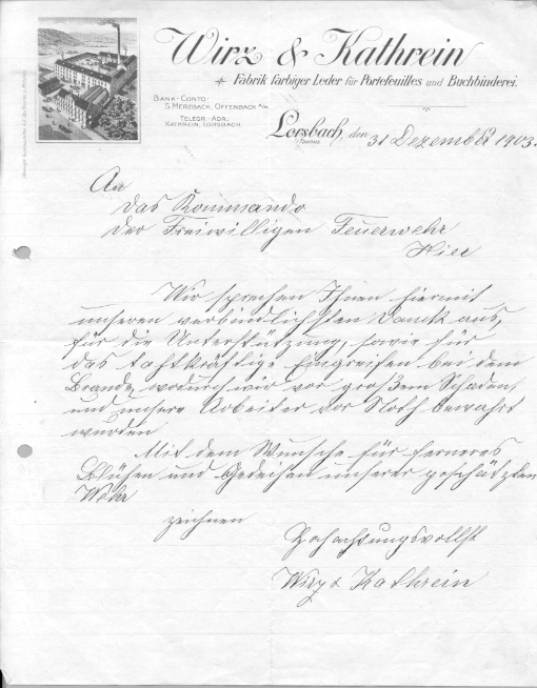 Wirz & Kathrein
Fabrik farbiger Leder für Portefeuilles und Buchbinderei.
BANK-CONTO:
S. MERZBACH, OFFENBACH A/M.
TELEGR.-ADR.:
KATHREIN, LORSBACH.
Lorsbach, den 31 Dezember 1903.
An
das Kommando
der Freiwilligen Feuerwehr
Hier
Wir sprechen Ihnen hiermit
unseren verbindlichsten Danck aus,
für die Unterstützung, sowie für
das tatkräftige Eingreifen bei dem
Brande, wodurch wir vor großem Schaden,
und unsere Arbeiter vor Noth bewahrt
wurden
Mit dem Wunsche für ferneres
Blühen und Gedeihen unserer geschätzten
Wehr
zeichnen
Hochachtungsvollst
Wirz & Kathrein